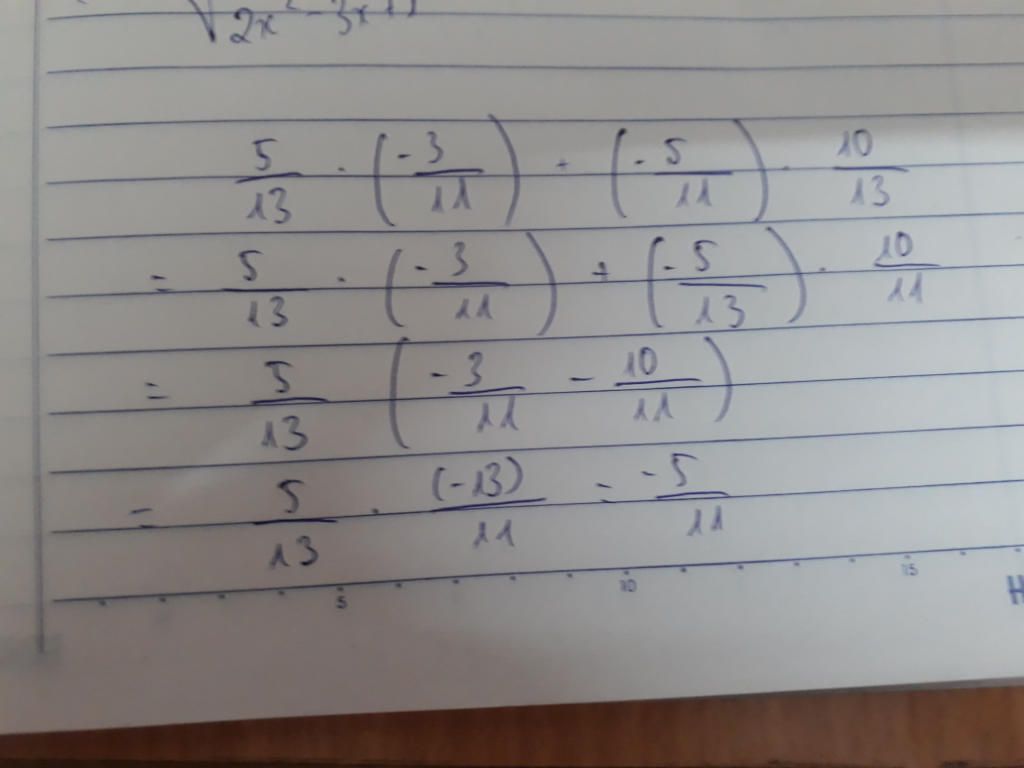 √2x² - 3x + 1
5/13 · (-3/11) + (-5/11) · 10/13
= 5/13 · (-3/11) + (-5/13) · 10/11
= 5/13 (-3/11 - 10/11)
= 5/13 · (-13)/11 = -5/11
5 10 15
H